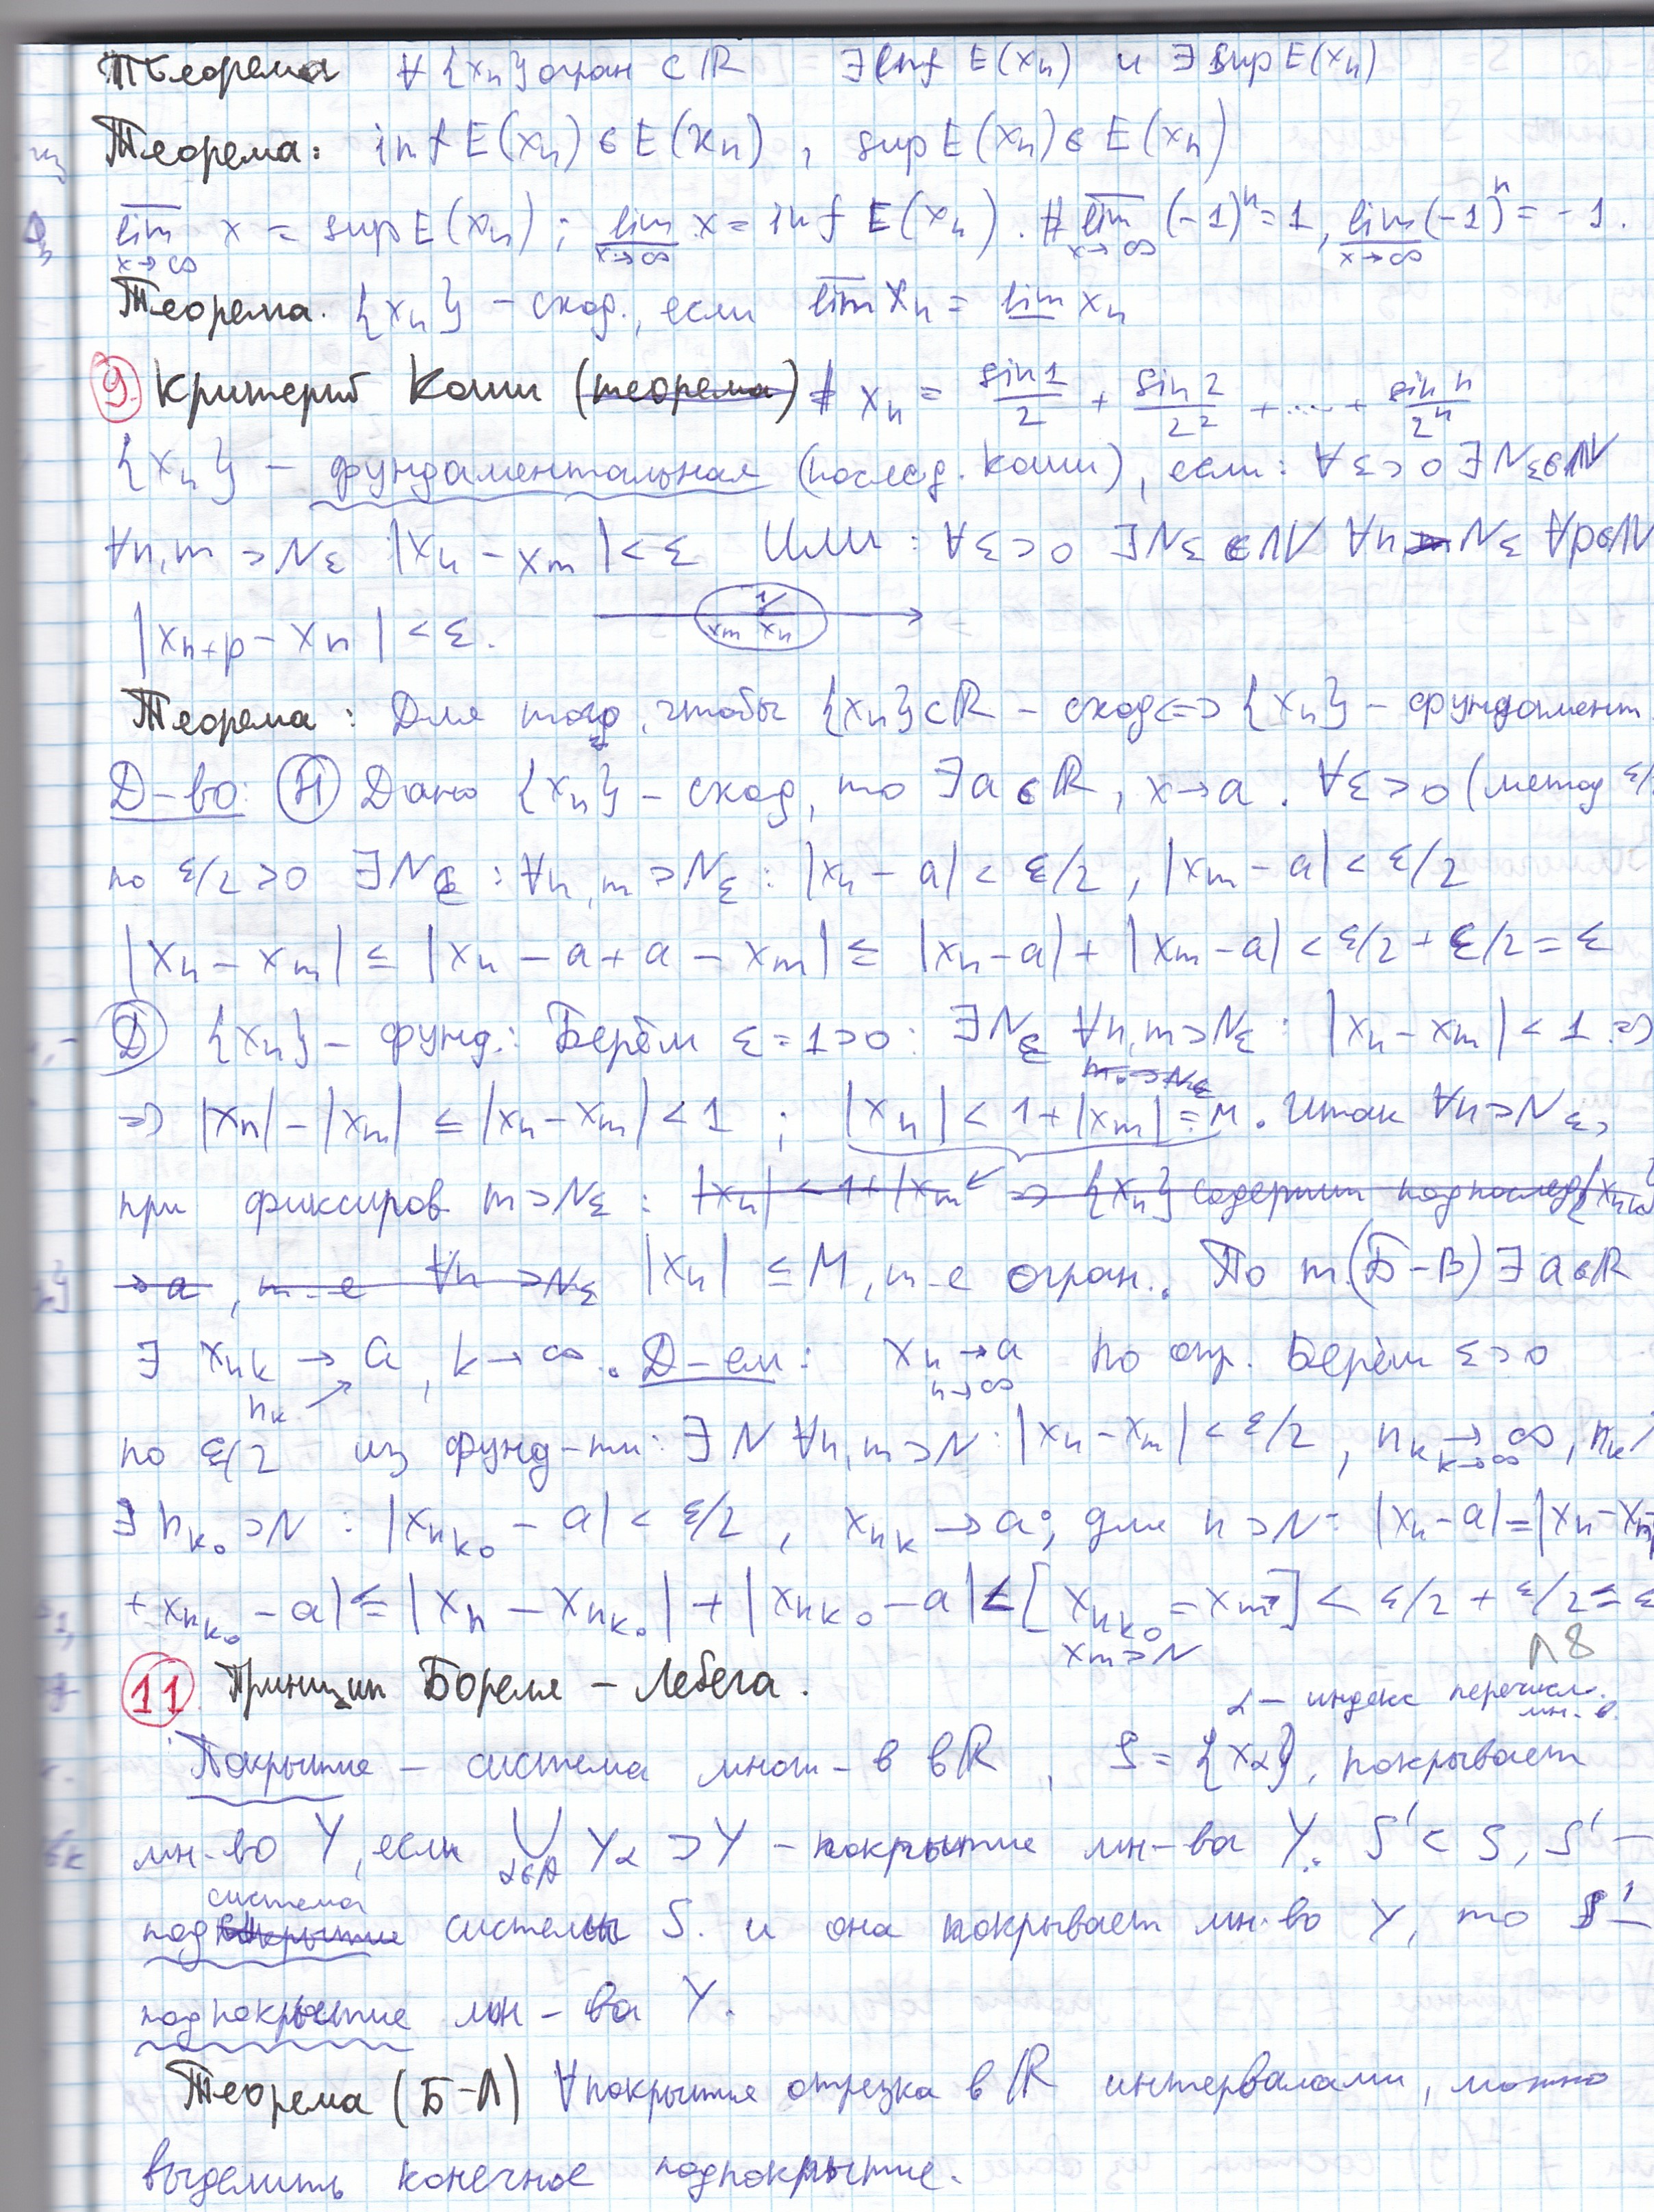 Теорема ∀ {xₙ} огран ⊂ ℝ ∃ inf E(xₙ) и ∃ sup E(xₙ)
Теорема: inf E(xₙ) ∈ E(xₙ), sup E(xₙ) ∈ E(xₙ)
lim̅ x→∞ x = sup E(xₙ); lim̲ x→∞ x = inf E(xₙ). # lim̅ x→∞ (-1)ⁿ = 1, lim̲ x→∞ (-1)ⁿ = -1.
Теорема. {xₙ} – сход., если lim̅ xₙ = lim̲ xₙ
9. Критерий Коши (теорема) # xₙ = sin1/2 + sin2/2² + ... + sin n/2ⁿ
{xₙ} – фундаментальная (послед. Коши), если: ∀ε>0 ∃Nε∈ℕ
∀n,m > Nε |xₙ - xₘ| < ε Или: ∀ε>0 ∃Nε∈ℕ ∀n>Nε ∀p∈ℕ
1
xₘ xₙ
|xₙ₊ₚ - xₙ| < ε.
Теорема: Для того, чтобы {xₙ}⊂ℝ – сход <=> {xₙ} – фундамент.
Д-во: (Н) Дано {xₙ} – сход, то ∃a∈ℝ, x→a. ∀ε>0 (метод
по ε/2>0 ∃Nε: ∀n,m>Nε: |xₙ - a| < ε/2, |xₘ - a| < ε/2
|xₙ - xₘ| ≤ |xₙ - a + a - xₘ| ≤ |xₙ - a| + |xₘ - a| < ε/2 + ε/2 = ε
(Д) {xₙ} – фунд.: Берём ε=1>0: ∃Nε ∀n,m>Nε: |xₙ - xₘ| < 1 =>
=> |xₙ| - |xₘ| ≤ |xₙ - xₘ| < 1; |xₙ| < 1 + |xₘ| = M. Итак ∀n>Nε,
при фиксиров m>Nε: |xₙ| < 1 + |xₘ| => {xₙ} содержит подпослед {xₙₖ}
→ a, т-е ∀n > Nε |xₙ| ≤ M, т-е огран.. По т.(Б-В) ∃ a∈ℝ
∃ xₙₖ → a, k→∞. Д-ем: xₙ → a n→∞ по опр. Берём ε>0
nₖ ↗
по ε/2 из фунд-ти: ∃ N ∀n,m>N: |xₙ - xₘ| < ε/2, nₖ → ∞ k→∞, nₖ ↗
∃ nₖ₀ > N: |xₙₖ₀ - a| < ε/2, xₙₖ → a; для n>N: |xₙ - a| = |xₙ - xₙ
+ xₙₖ₀ - a| ≤ |xₙ - xₙₖ₀| + |xₙₖ₀ - a| < [xₙₖ₀ = xₘ] < ε/2 + ε/2 = ε
xₘ > N
Л8
11. Принцип Бореля – Лебега.
α – индекс перечисл. мн-в.
Покрытие – система множ-в в ℝ, S = {Xα}, покрывает
мн-во Y, если ⋃ α∈A Yα ⊃ Y – покрытие мн-ва Y. S' ⊂ S, S' –
система
подпокрытие системы S. и она покрывает мн-во Y, то S' –
подпокрытие мн-ва Y.
Теорема (Б-Л) ∀ покрытия отрезка в ℝ интервалами, можно
выделить конечное подпокрытие.